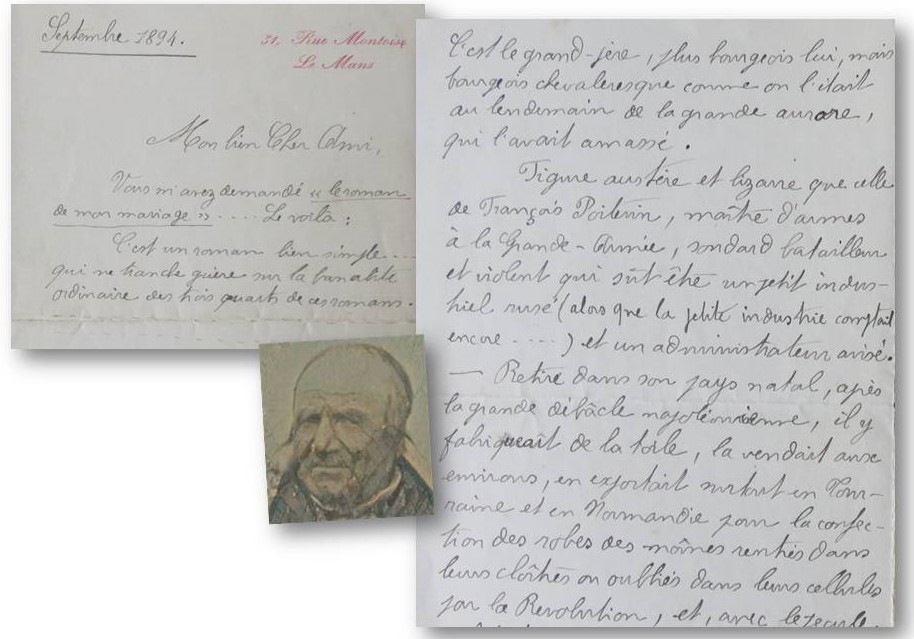 Septembre 1894.
31, Rue Montoise
Le Mans
Mon bien Cher Ami,
Vous m'avez demandé « le roman
de mon mariage » .... Le voilà :
C'est un roman bien simple ...
qui ne tranche guère sur la banalité
ordinaire des trois quarts de ces romans.
C'est le grand-père, plus bourgeois lui, mais
bourgeois chevaleresque comme on l'était
au lendemain de la grande aurore,
qui l'avait amassé.
Figure austère et bizarre que celle
de François Poitevin, maître d'armes
à la Grande-Armée, soudard batailleur
et violent qui sût être un petit indus-
triel rusé (alors que la petite industrie comptait
encore ....) et un administrateur avisé.
— Retiré dans son pays natal, après
la grande débâcle napoléonienne, il y
fabriquait de la toile, la vendait aux
environs, en exportait surtout en Tou-
raine et en Normandie pour la confec-
tion des robes des moines rentrés dans
leurs cloîtres ou oubliés dans leurs cellules
par la Revolution, et, avec le pécule,